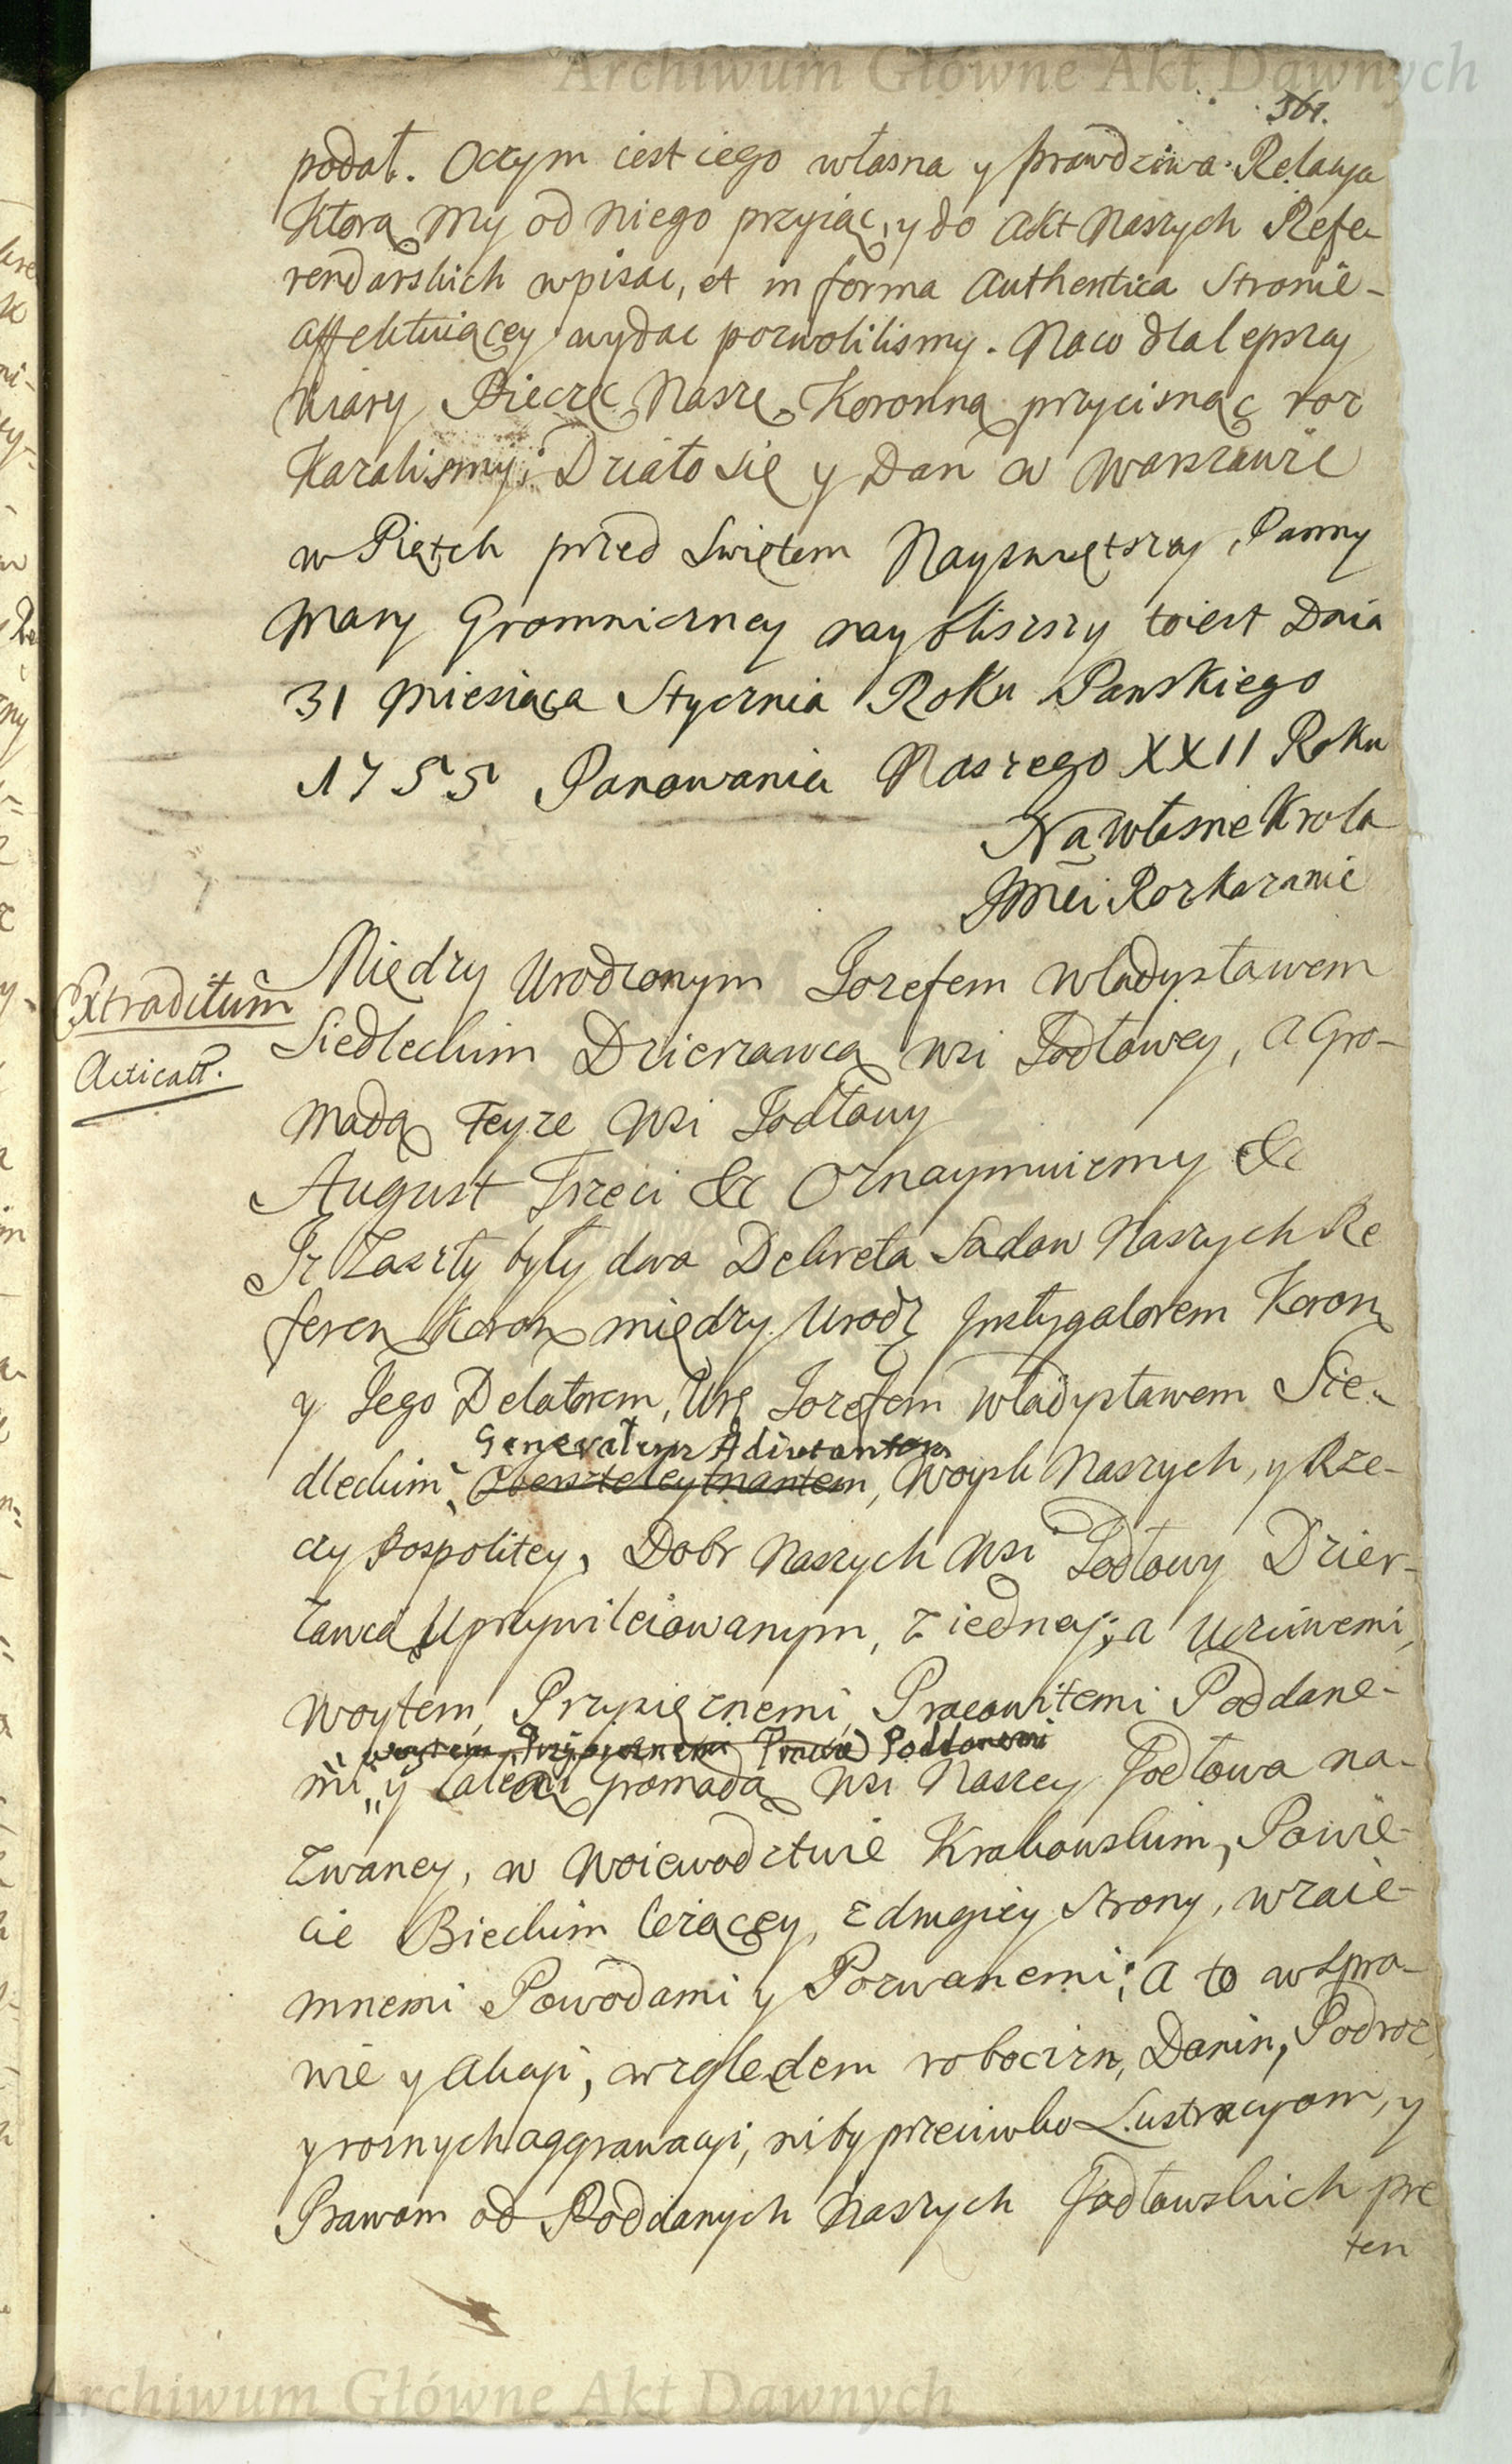 Archiwum Główne Akt Dawnych
361.
podał. Oczym iest iego własna y prawdziwa Relacya
Ktorą My od niego przyiąc, y do akt Naszych Refe-
rendarskich wpisac, et in forma Authentica Stronie-
affektuiącey wydac pozwolilismy. Naco dla lepszey
wiary Pieczęc Naszę Koronną przycisnąc roz
Kazalismy. Działo się y Dan w Warszawie
w Piątek przed Swiętem Nayswiętszey Panny
Mary Gromniczney naybliszszy toiest Dnia
31 Miesiąca Stycznia Roku Panskiego
1755 Panowania Naszego XXII Roku
Na własne Krola
JMci Rozkazanie
Extraditum
Acticatt.
Między Urodzonym Jozefem Władysławem
Siedleckim Dzierzawcą wsi Jodłowey, a Gro-
madą teyze wsi Jodłowy
August Trzeci &c Oznaymuiemy &c
Iz Zaszły były dwa Dekreta Sadow Naszych Re
feren Koron między Urodz Instygatorem Koron
y Jego Delatorem, Ur Jozefem Władysławem Sie-
Generalnym Adiutantem
dleckim, Obersztleytnantem, Woysk Naszych, y Rze-
czy pospolitey, Dobr Naszych wsi Jodłowy Dzier-
zawcą Uprzywileiowanym, z iedney; a Uczciwemi,
Woytem, Przysięznemi, Pracowitemi Poddane-
woytem, Przysięznemi Pracow Poddanemi
mi, y całą Gromadą wsi Naszey Jodłowa na-
zwaney, w Woiewodztwie Krakowskim, Powie-
cie Bieckim lezącey, z drugiey strony, wzaie-
mnemi Powodami y Pozwanemi; a to w Spra-
wie y Akcyi, względem robocizn, Danin, Podroz
y roznych aggrawacyi, niby przeciwko Lustracyom, y
Prawom od Poddanych Naszych Jodłowskich pre
ten
Archiwum Główne Akt Dawnych